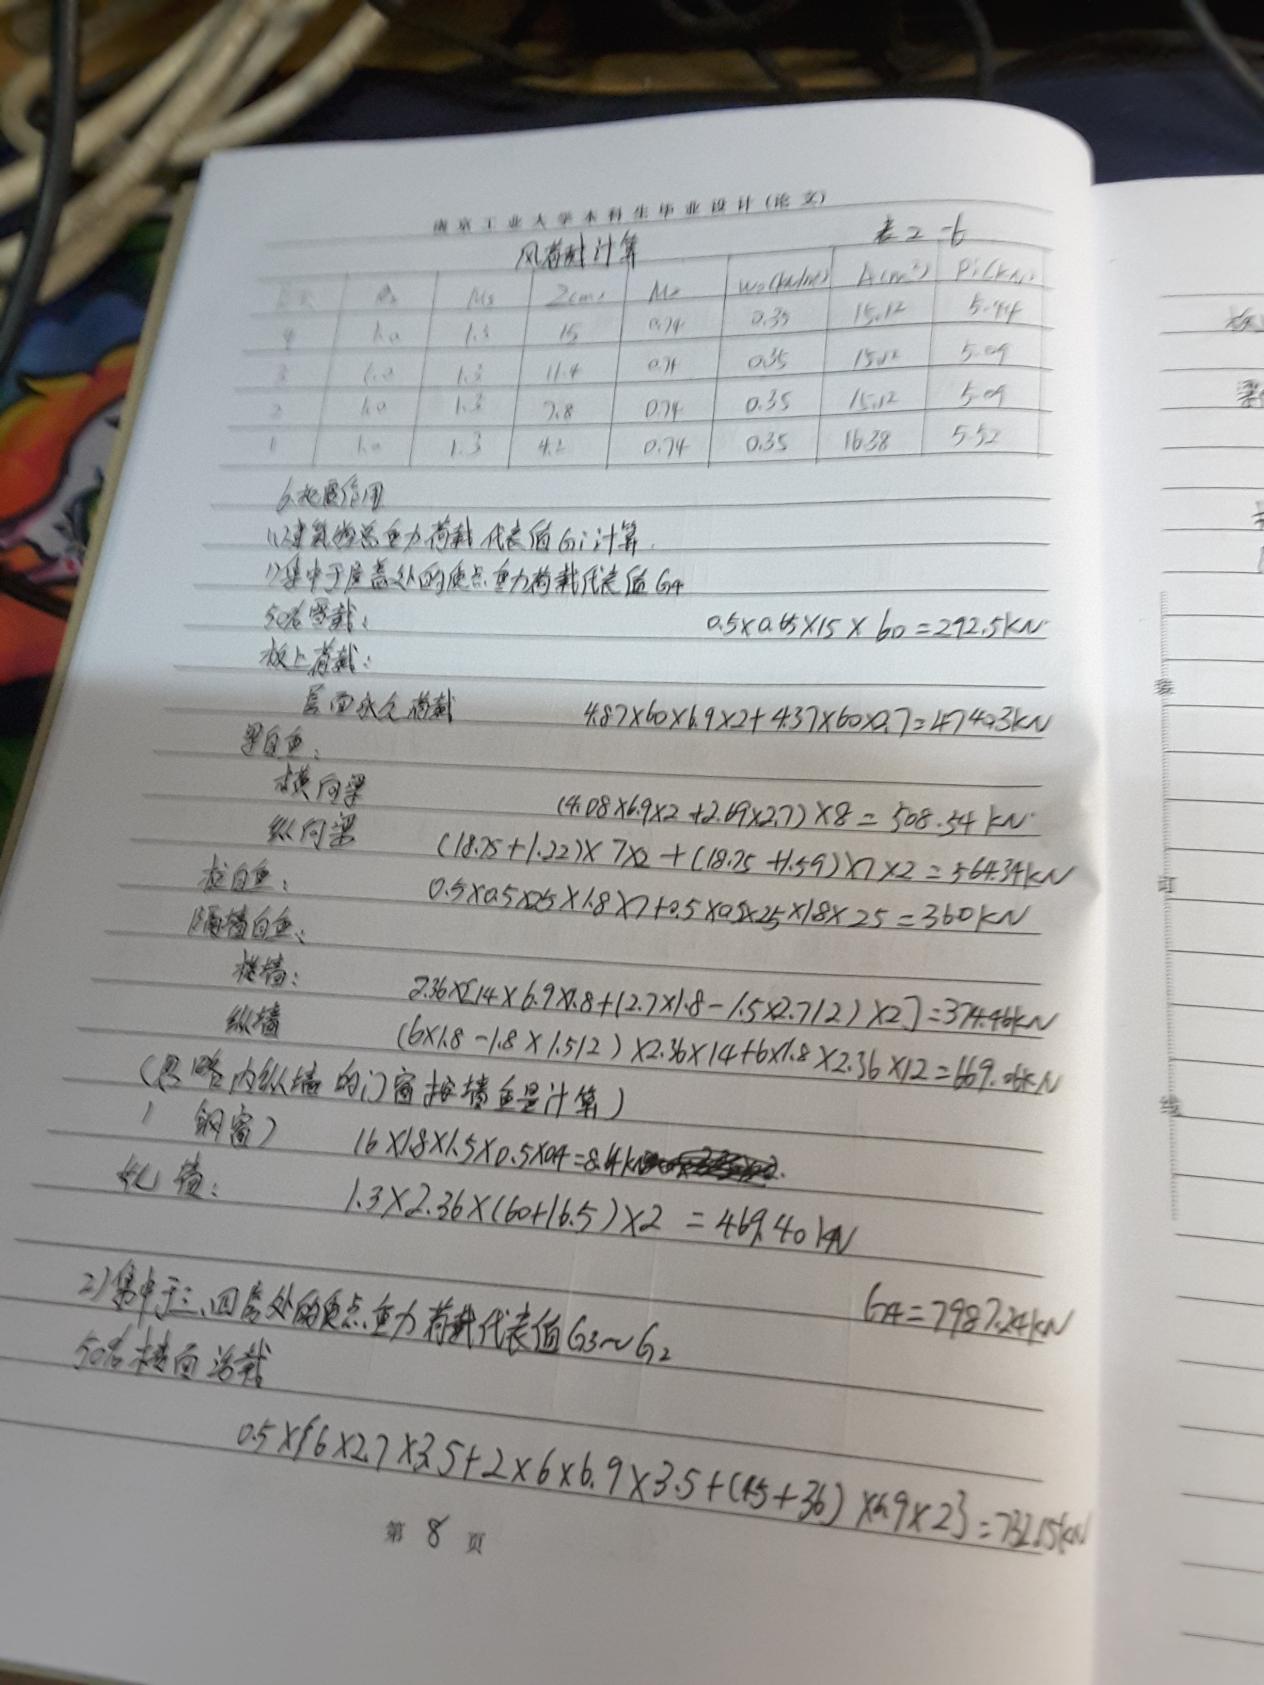 南京工业大学本科生毕业设计(论文)
风荷载计算 表2-6
βz μs Z(m) μz W0(kN/m²) A(m²) Pi(kN)
4 1.0 1.3 15 0.74 0.35 15.12 5.44
3 1.0 1.3 11.4 0.74 0.35 15.12 5.09
2 1.0 1.3 7.8 0.74 0.35 15.12 5.09
1 1.0 1.3 4.2 0.74 0.35 16.38 5.52
6.地震作用
(1)建筑物总重力荷载代表值Gi计算.
1)集中于屋盖处的质点重力荷载代表值G4
50%雪载: 0.5×0.65×15×60=292.5kN
板上荷载:
屋面永久荷载 4.87×60×6.9×2+4.37×60×2.7=4740.3kN
梁自重:
横向梁 (4.08×6.9×2+2.69×2.7)×8=508.54kN
纵向梁 (18.75+1.22)×7×2+(18.75+1.59)×7×2=564.34kN
柱自重: 0.5×0.5×25×1.8×7+0.5×0.5×25×1.8×25=360kN
隔墙自重:
横墙: 2.36×[14×6.9×1.8+(2.7×1.8-1.5×2.7/2)×2]=374.46kN
纵墙 (6×1.8-1.8×1.5/2)×2.36×14+6×1.8×2.36×12=669.06kN
(忽略内纵墙的门窗按墙重量计算)
(钢窗) 16×1.8×1.5×0.5×0.4=8.4kN
墙: 1.3×2.36×(60+16.5)×2=469.40kN
G4=7987.24kN
2)集中于三、四层处的质点重力荷载代表值G3~G2
50%楼面活载
0.5×{6×2.7×3.5+2×6×6.9×3.5+(45+36)×6.9×2}=732.15kN
第 8 页
装
订
线